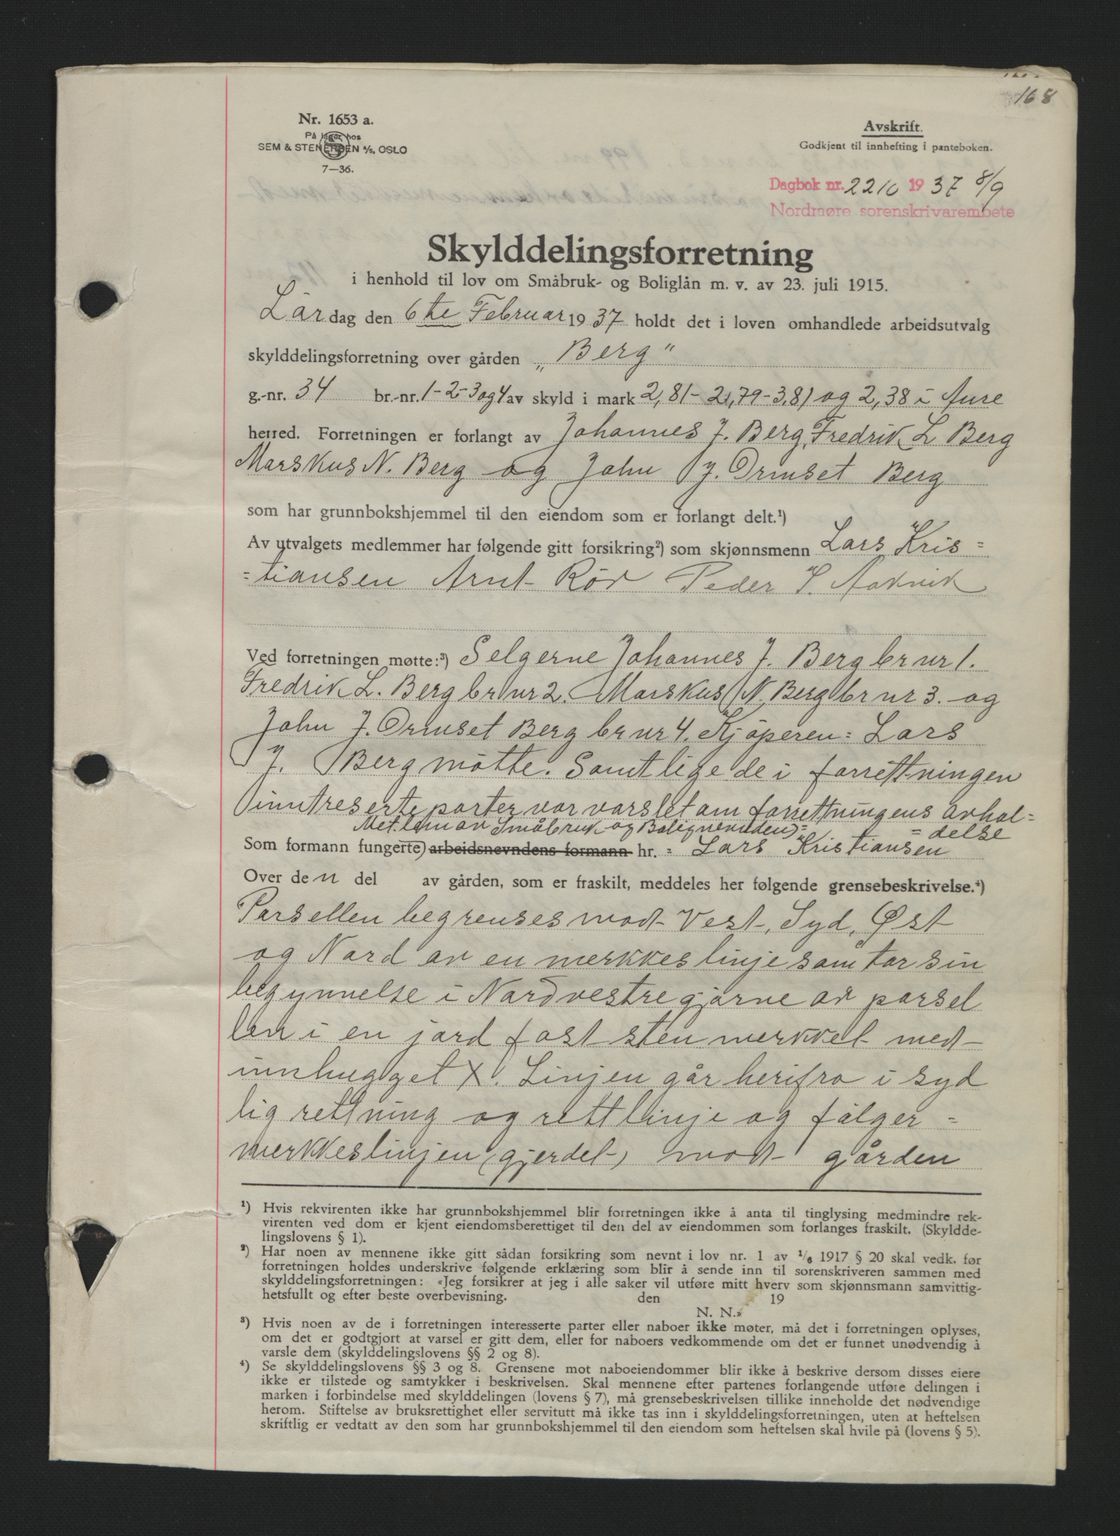 168
Nr. 1653 a.
På lager hos
SEM & STENERSEN A/S, OSLO
7—36.
Avskrift.
Godkjent til innhefting i panteboken.
Dagbok nr. 2210 1937 8/9
Nordmøre sorenskrivarembete
Skylddelingsforretning
i henhold til lov om Småbruk- og Boliglån m. v. av 23. juli 1915.
Lördag den 6te Februar 1937 holdt det i loven omhandlede arbeidsutvalg
skylddelingsforretning over gården „Berg"
g.-nr. 34 br.-nr. 1-2-3 og 4 av skyld i mark 2,81 - 2,79 - 3,81 og 2,38 i Aure
herred. Forretningen er forlangt av Johannes J. Berg, Fredrik L Berg
Marskus N. Berg og John J. Ormset Berg
som har grunnbokshjemmel til den eiendom som er forlangt delt.¹)
Av utvalgets medlemmer har følgende gitt forsikring²) som skjønnsmenn Lars Kris=
=tiansen Arnt Rör Peder S. Aakvik
Ved forretningen møtte:³) Selgerne Johannes J. Berg br nr 1.
Fredrik L. Berg br nr 2. Marskus N. Berg br nr 3. og
John J. Ormset Berg br nr 4. Kjöperen: Lars
J. Berg mötte. Samtlige de i forrettningen
inntreserte parter var varslet om forrettningens avhol=
=delse
Metlem av Småbruk og Bolignevnden):
Som formann fungerte) arbeidsnevndens formann hr. = Lars Kristiansen
Over den del av gården, som er fraskilt, meddeles her følgende grensebeskrivelse.⁴)
Parsellen begrenses mot Vest, Syd, Øst
og Nord av en merkkeslinje som tar sin
begynnelse i Nordvestre gjörne av parsel
len i en jord fast sten merkket med
innhugget X. Linjen går herifra i syd
lig rettning og rett linje og fölger =
merkkeslinjen (gjerdet) mot gården
¹) Hvis rekvirenten ikke har grunnbokshjemmel blir forretningen ikke å anta til tinglysing medmindre rek-
virenten ved dom er kjent eiendomsberettiget til den del av eiendommen som forlanges fraskilt. (Skyldde-
lingslovens § 1).
²) Har noen av mennene ikke gitt sådan forsikring som nevnt i lov nr. 1 av 1/6 1917 § 20 skal vedk. før
forretningen holdes underskrive følgende erklæring som blir å sende inn til sorenskriveren sammen med
skylddelingsforretningen: «Jeg forsikrer at jeg i alle saker vil utføre mitt hverv som skjønnsmann samvittig-
hetsfullt og efter beste overbevisning. den 19
N. N.»
³) Hvis noen av de i forretningen interesserte parter eller naboer ikke møter, må det i forretningen oplyses,
om det er godtgjort at varsel er gitt dem, eller for naboers vedkommende om det er funnet unødvendig å
varsle dem (skylddelingslovens §§ 2 og 8).
⁴) Se skylddelingslovens §§ 3 og 8. Grensene mot naboeiendommer blir ikke å beskrive dersom disses eiere
ikke er tilstede og samtykker i beskrivelsen. Skal mennene efter partenes forlangende utføre delingen i
marken i forbindelse med skylddelingen (lovens § 7), må grensebeskrivelsen tillike inneholde det nødvendige
herom. Stiftelse av bruksrettighet eller servitutt må ikke tas inn i skylddelingsforretningen, uten at heftelsen
skriftlig er vedtatt av den som har grunnbokshjemmel til den eiendom som heftelsen skal hvile på (lovens § 5).